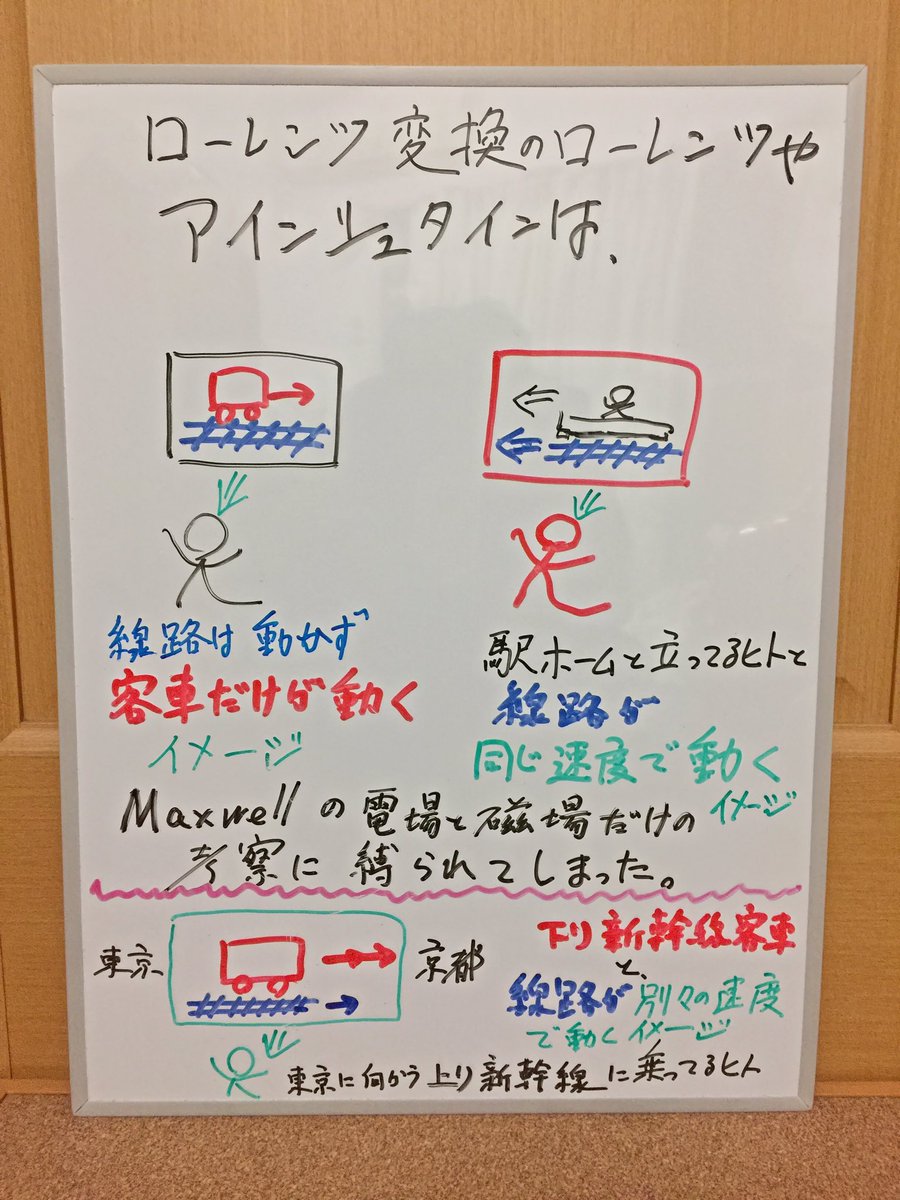 ローレンツ変換のローレンツや
アインシュタインは、
線路は動かず
客車だけが動く
イメージ
駅ホームと立ってるヒトと
線路が
同じ速度で動く
イメージ
Maxwellの電場と磁場だけの
考察に縛られてしまった。
東京
京都
下り新幹線客車
と、
線路が別々の速度
で動くイメージ
東京に向かう上り新幹線に乗ってるヒト